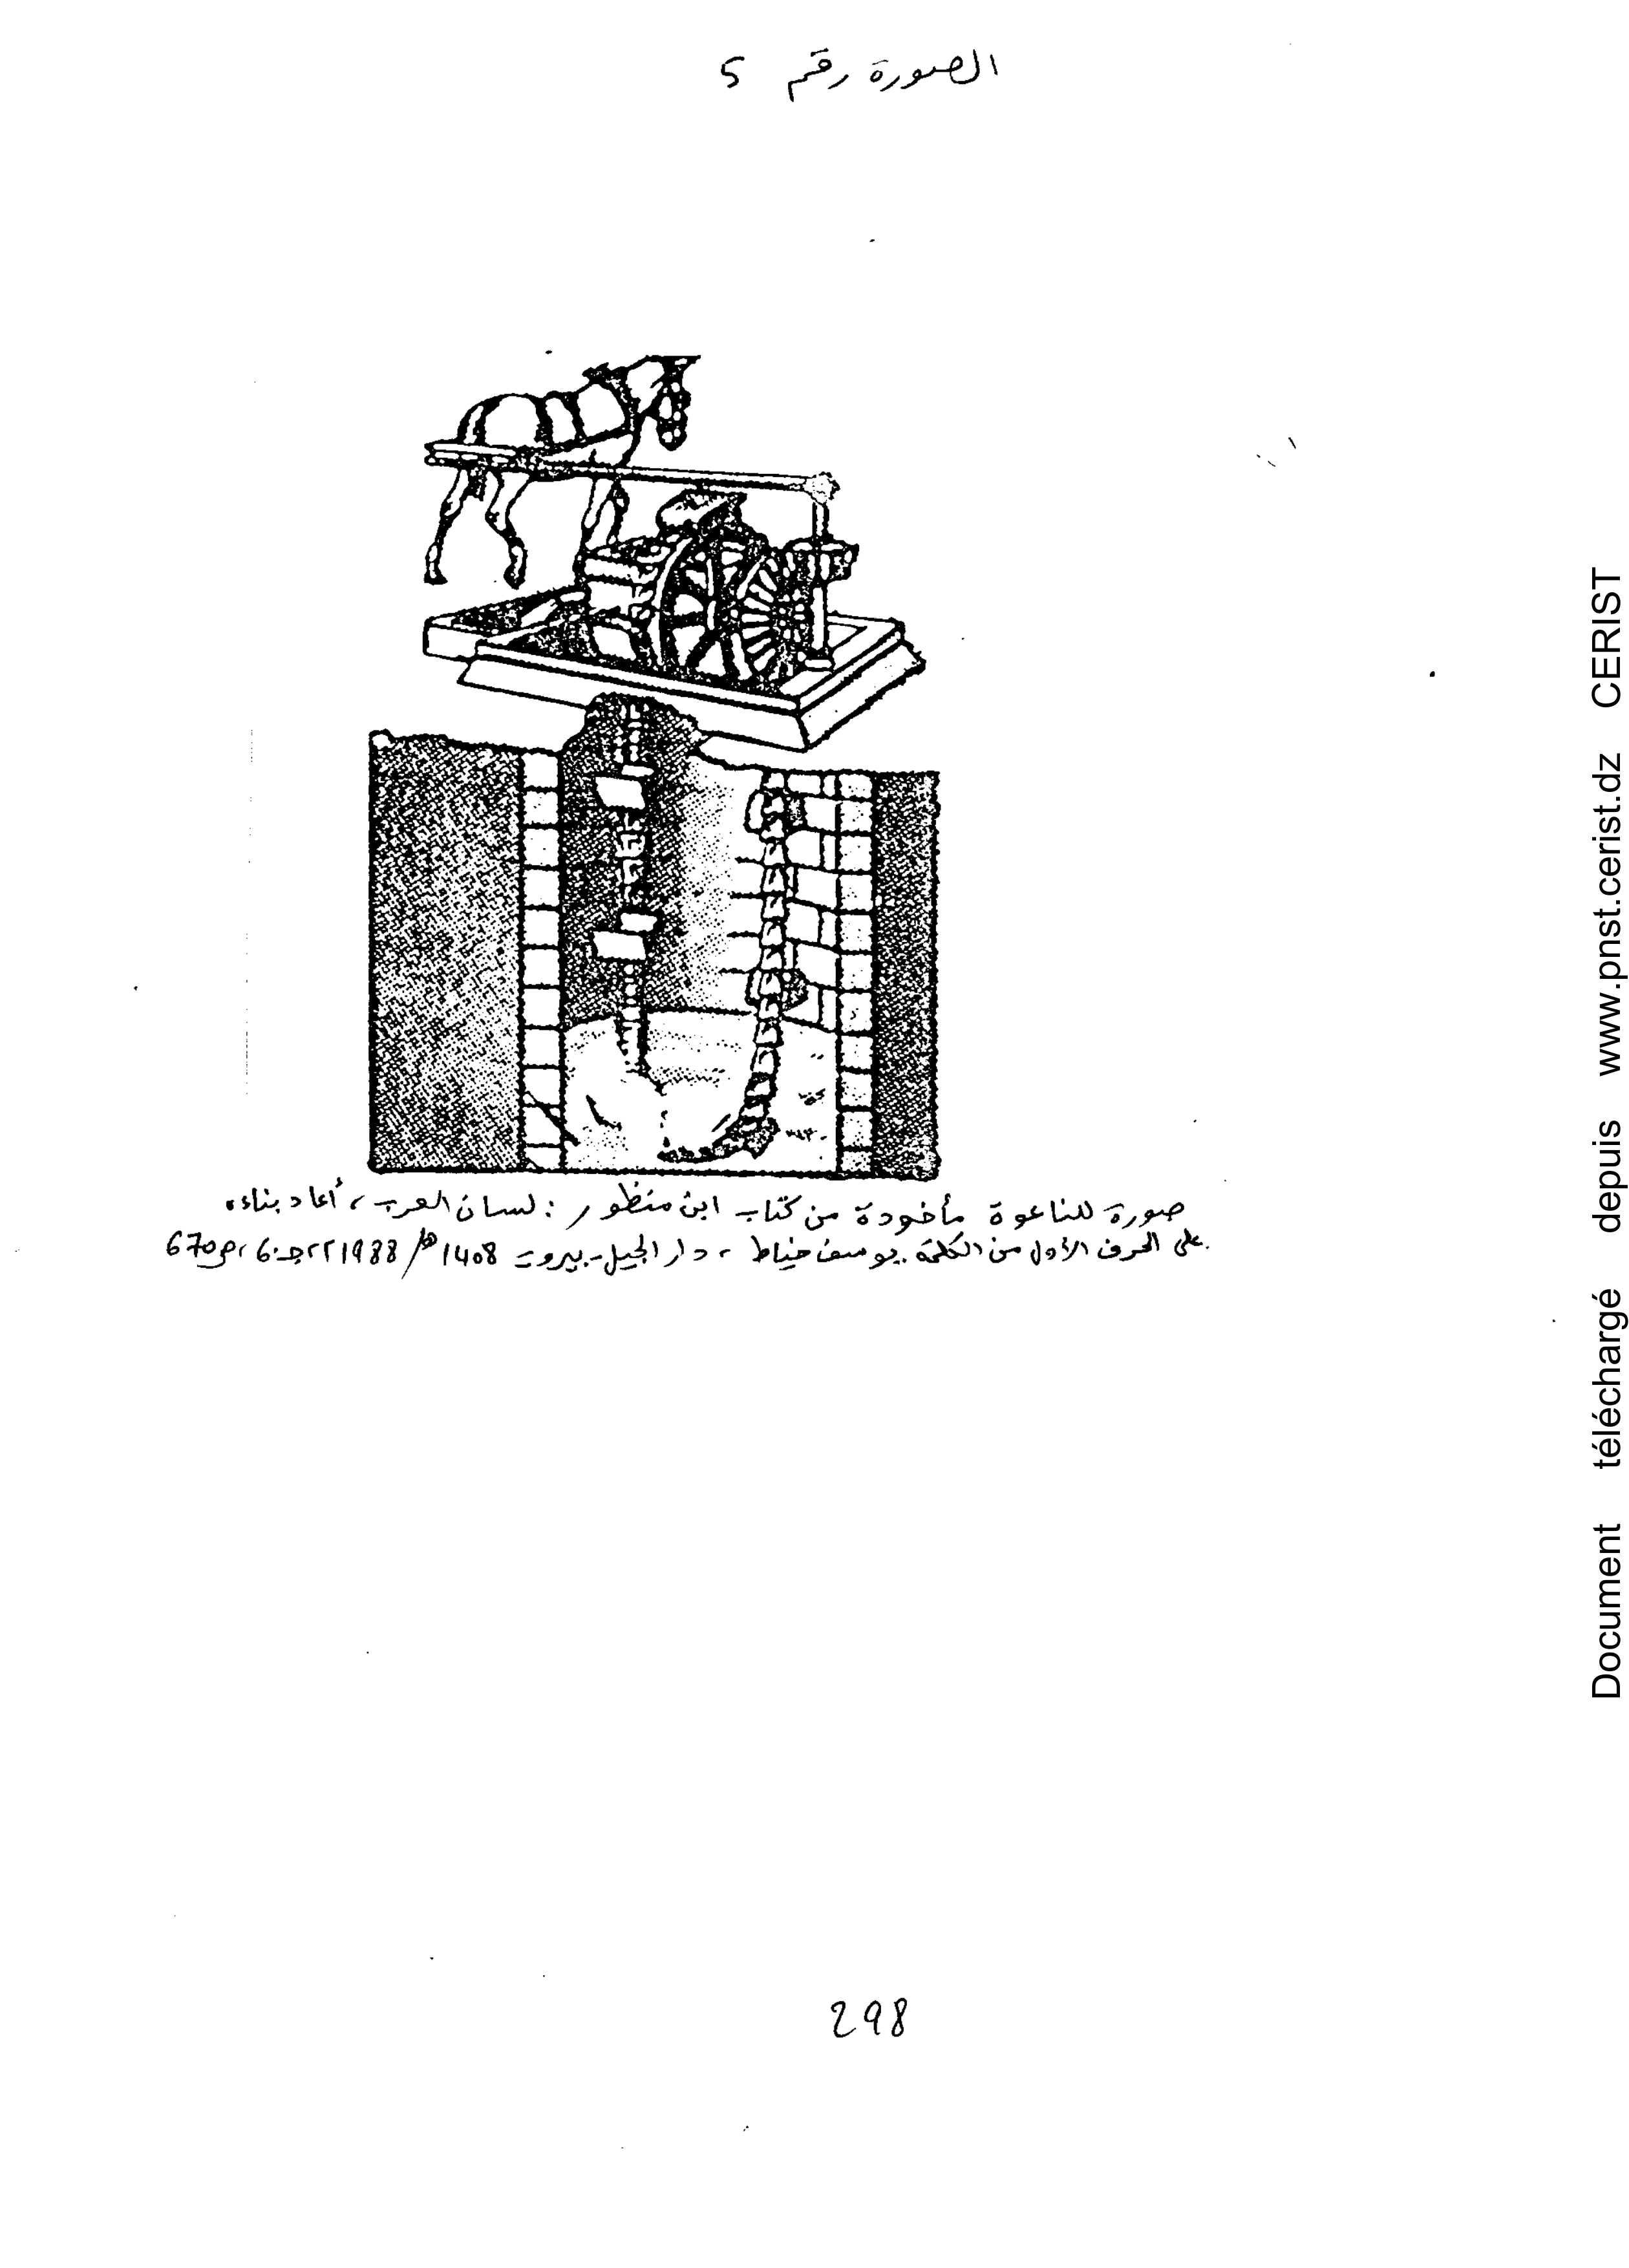 الصورة رقم 5
صورة للناعوة مأخودة من كتاب ابن منظور : لسان العرب ، أعاد بناءه
على الحرف الأول من الكلمة يوسف خياط ، دار الجيل - بيروت 1408هـ/ 1988م، جـ6، ص670
298
Document téléchargé depuis www.pnst.cerist.dz CERIST